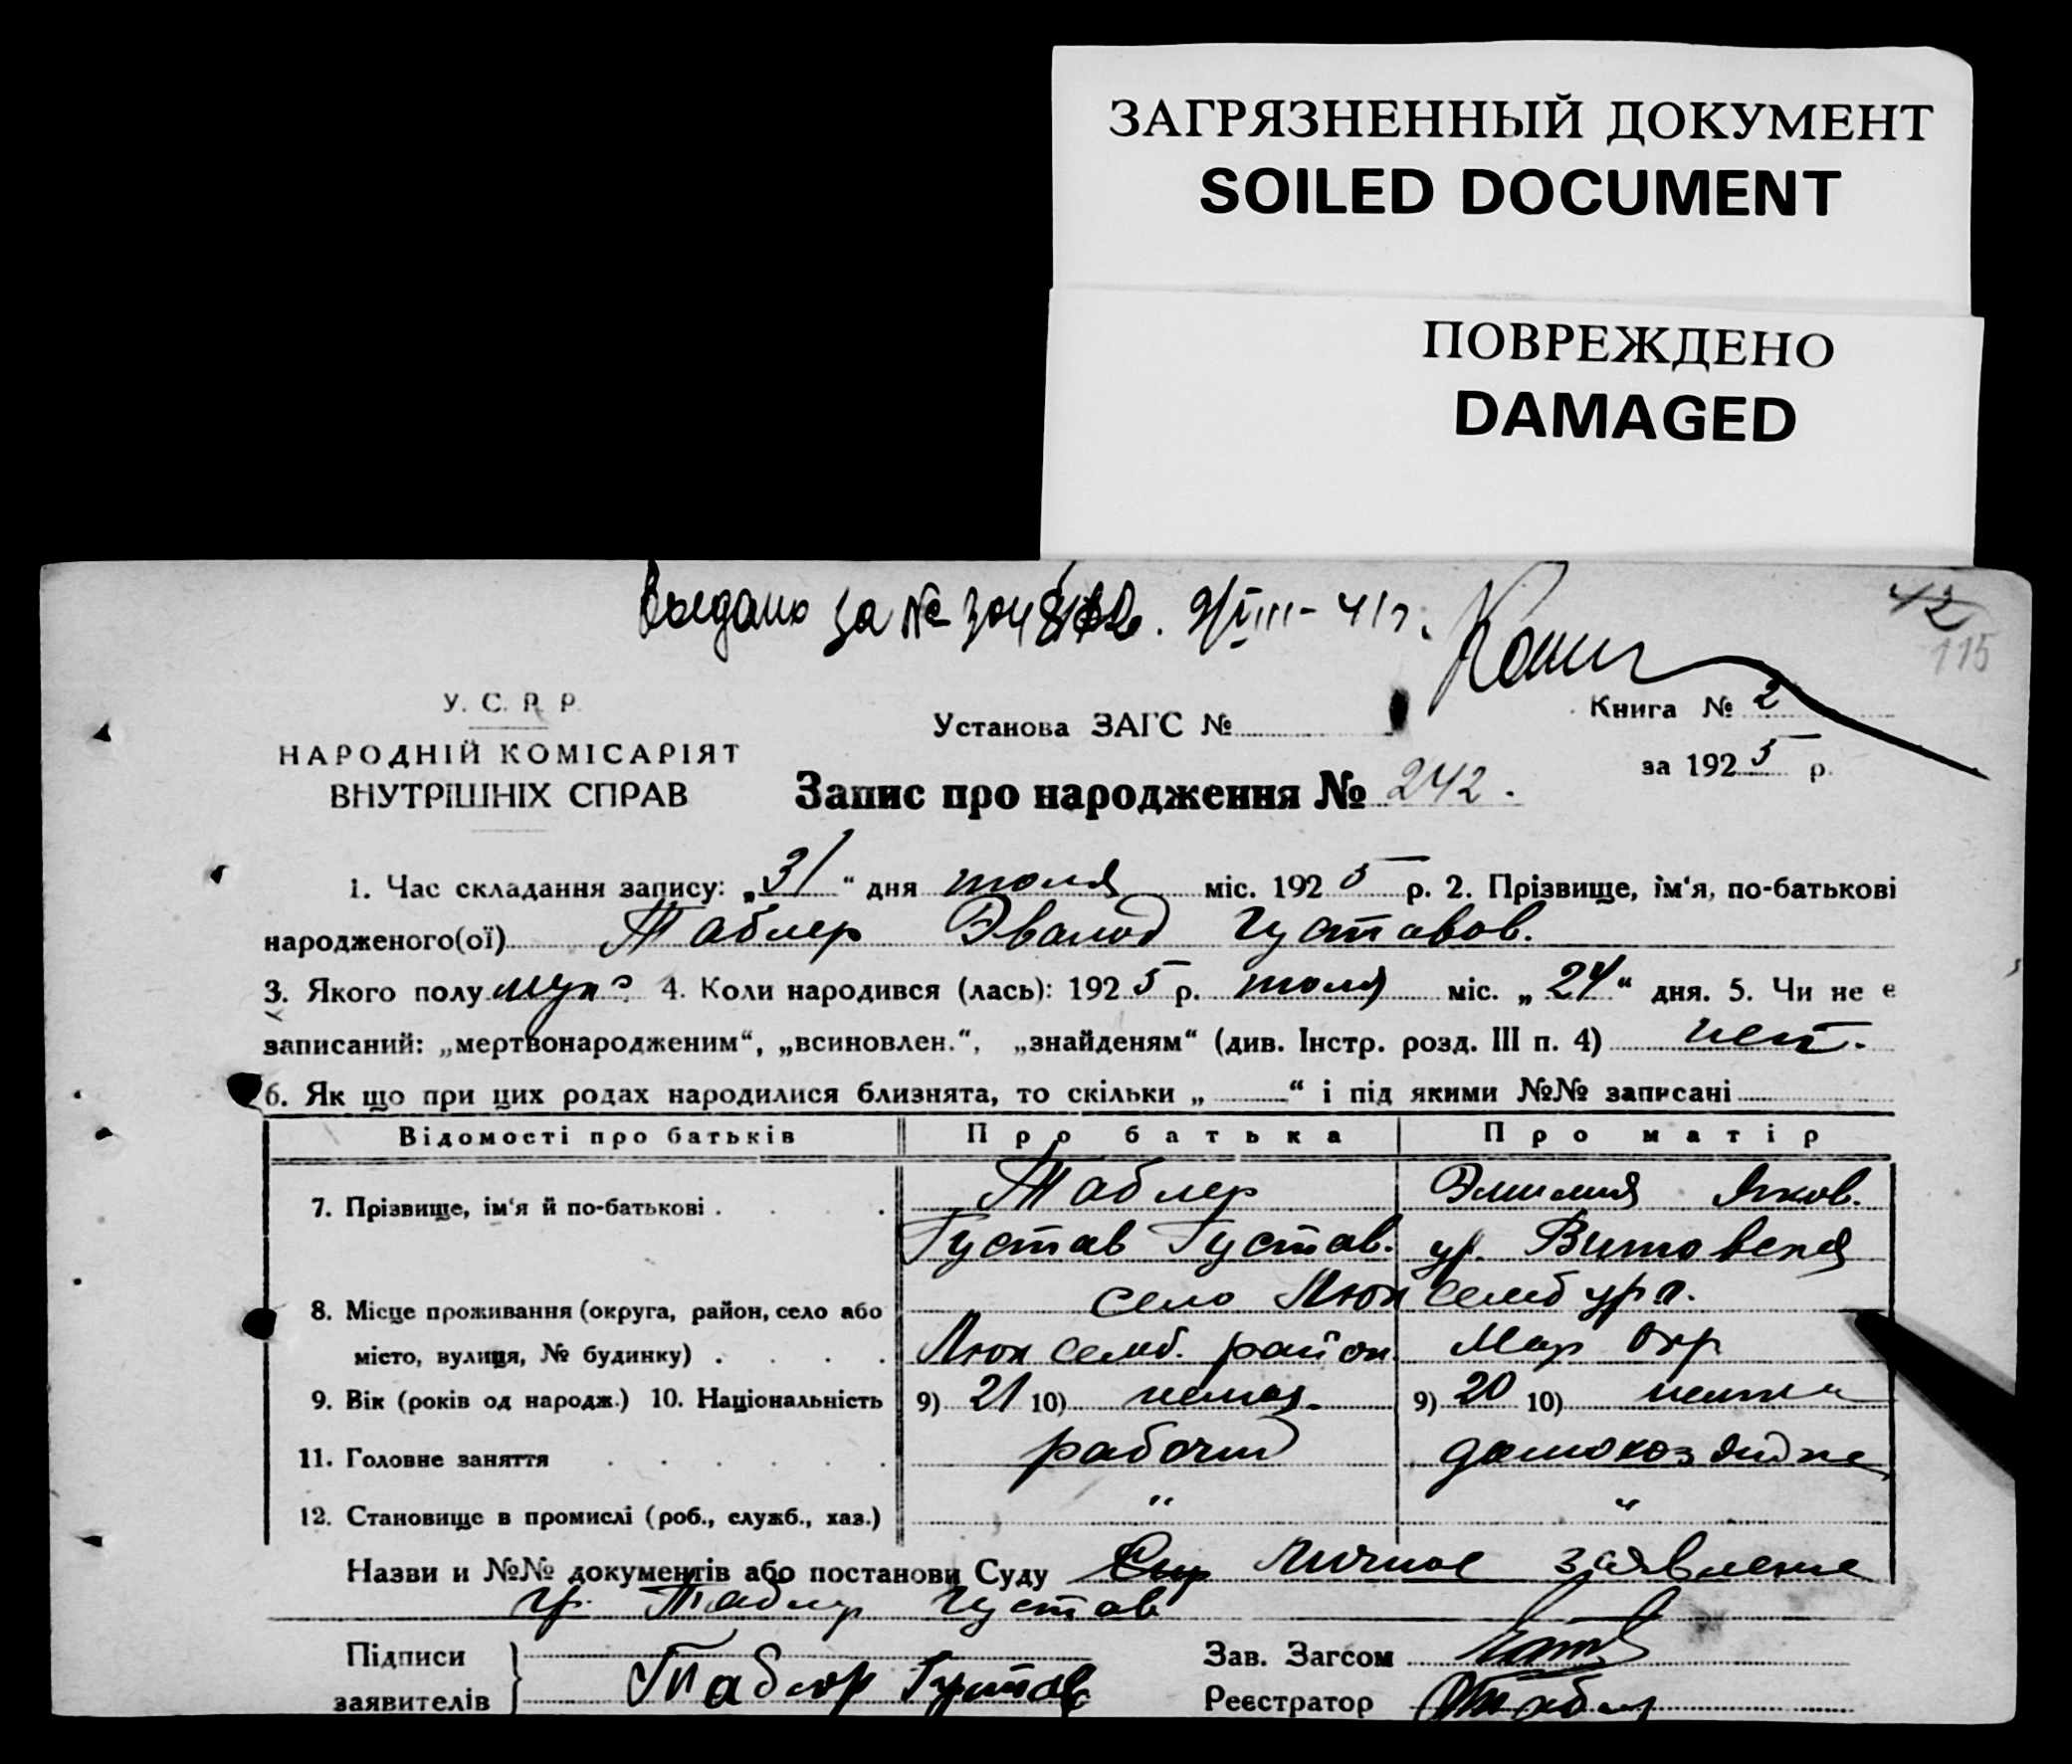 ЗАГРЯЗНЕННЫЙ ДОКУМЕНТ
SOILED DOCUMENT
ПОВРЕЖДЕНО
DAMAGED
Выдано за № 9/VIII - 41 г.
42
115
У. С. Р. Р.
НАРОДНІЙ КОМІСАРІЯТ
ВНУТРІШНІХ СПРАВ
Установа ЗАГС №
Книга № 2
за 1925 р.
Запис про народження № 242.
1. Час складання запису: „31“ дня июля міс. 1925 р. 2. Прізвище, ім‘я, по-батькові
народженого(ої) Таблер Эвальд Густавов.
3. Якого полу муж. 4. Коли народився (лась): 1925 р. июля міс. „24“ дня. 5. Чи не є
записаний: „мертвонародженим“, „всиновлен.“, „знайденям“ (див. Інстр. розд. III п. 4) нет.
6. Як що при цих родах народилися близнята, то скільки „ “ і під якими №№ записані
Відомості про батьків Про батька Про матір
7. Прізвище, ім‘я й по-батькові . . . Таблер Эмилия Яков.
Густав Густав. ур.
село Люксембург.
8. Місце проживання (округа, район, село або
місто, вулиця, № будинку) . . . . Люксемб. район Мар Окр
9. Вік (років од народж.) 10. Національність 9) 21 10) немец. 9) 20 10) немка
11. Головне заняття . . . . . . рабочий домохозяйка
12. Становище в промислі (роб., служб., хаз.) " "
Назви и №№ документів або постанови Суду личное заявление
гр. Таблер Густав
Підписи
заявителів Таблер Густав
Зав. Загсом
Реєстратор